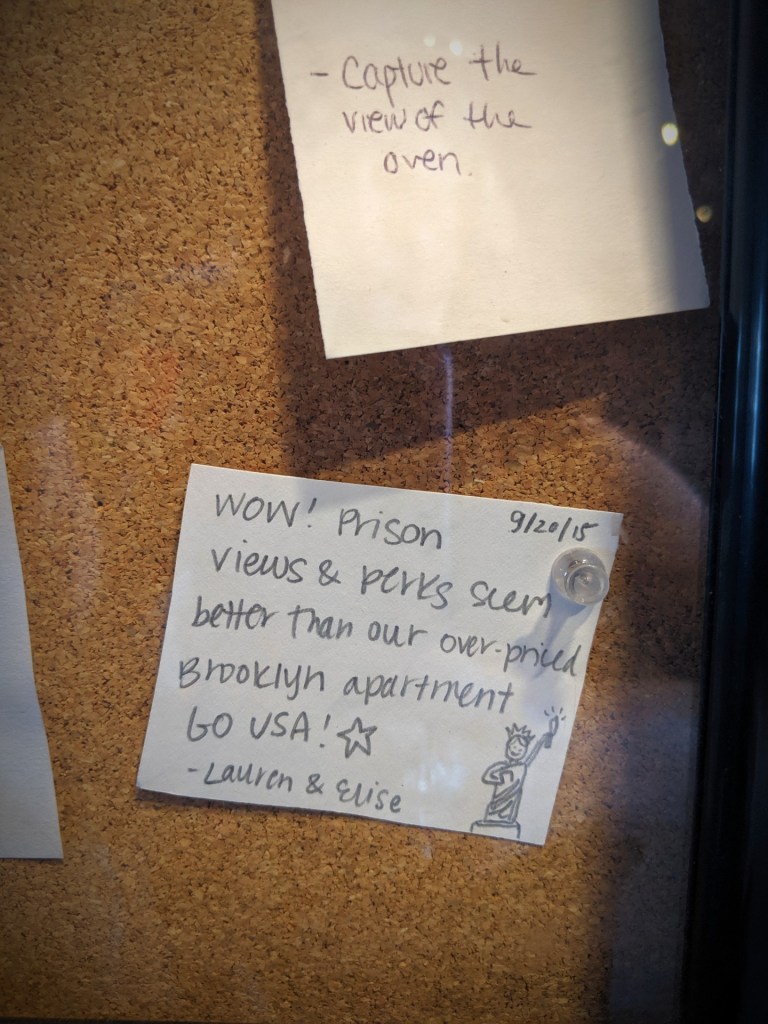 - Capture the
view of the
oven.
WOW! Prison 9/20/15
views & perks seem
better than our over-priced
Brooklyn apartment
GO USA! ☆
- Lauren & Elise